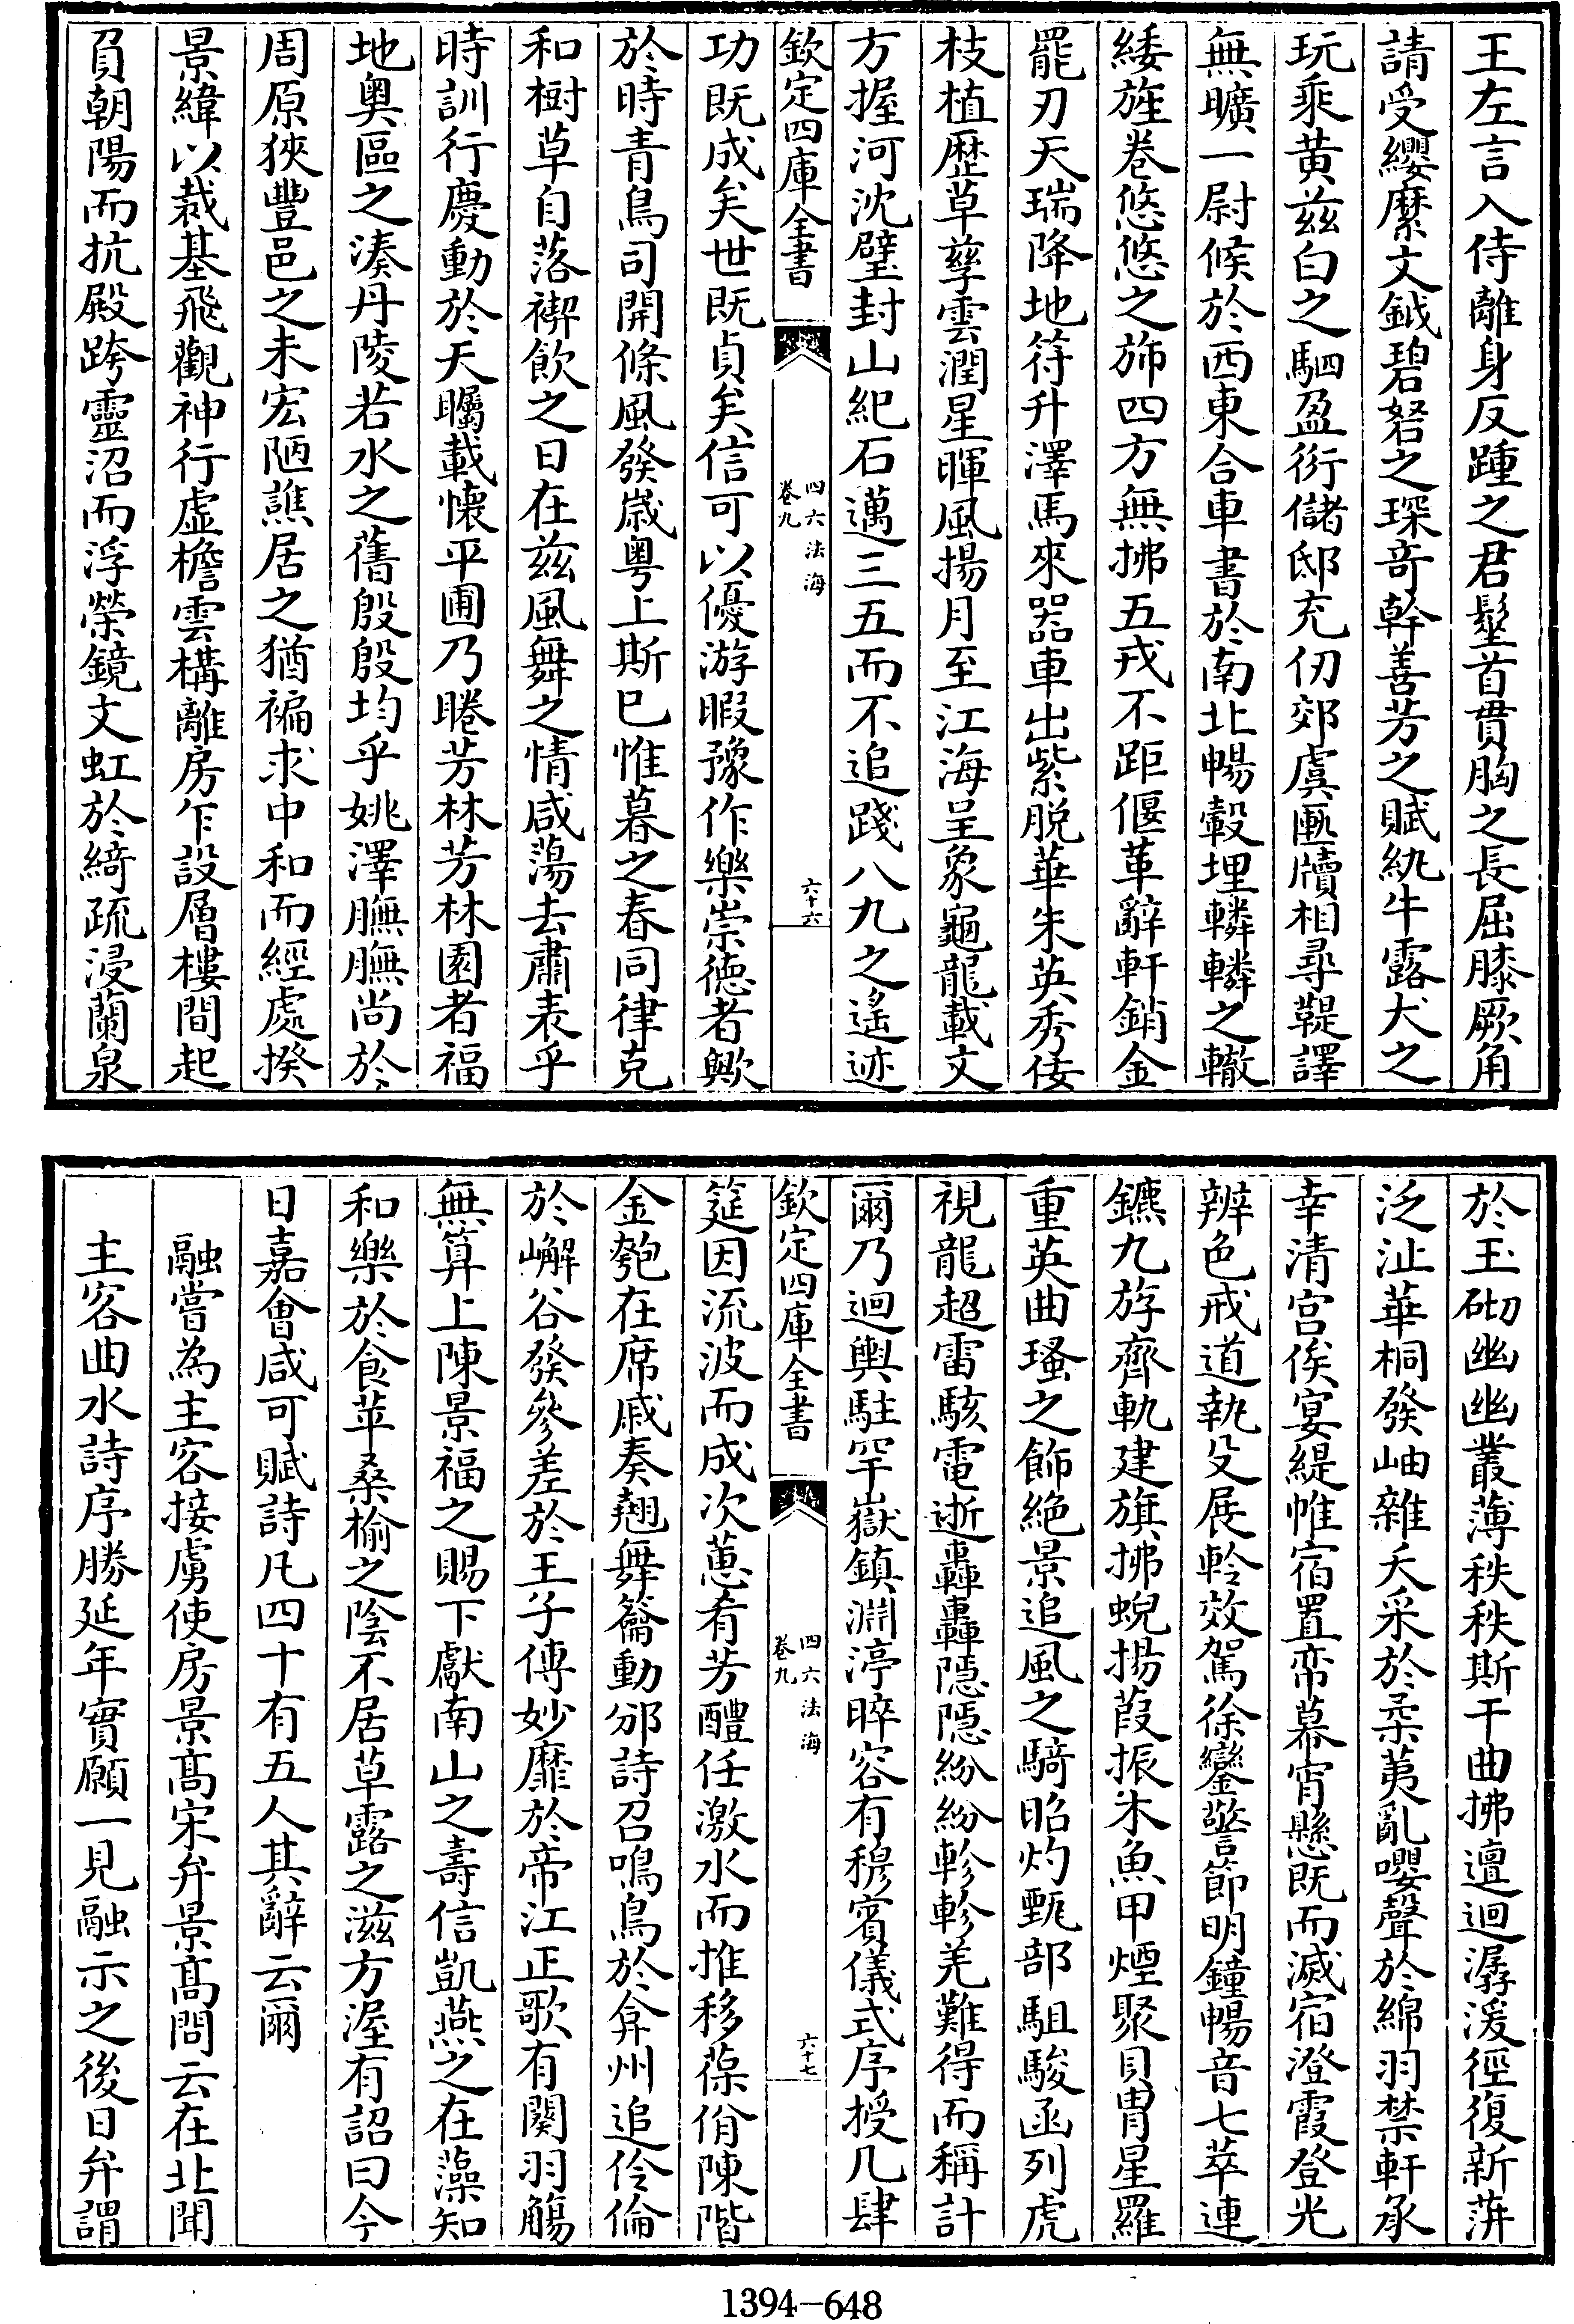 王左言入侍離身反踵之君髽首貫胸之長屈膝厥角
請受纓縻文鉞碧砮之琛奇幹善芳之賦紈牛露犬之
玩乘黃茲白之駟盈衍儲邸充仞郊虞匭牘相尋鞮譯
無曠一尉候於西東合車書於南北暢轂埋轔轔之轍
緌旌卷悠悠之斾四方無拂五戎不距偃革辭軒銷金
罷刃天瑞降地符升澤馬來器車出紫脫華朱英秀佞
枝植歷草孳雲潤星暉風揚月至江海呈象龜龍載文
方握河沈璧封山紀石邁三五而不追踐八九之遙迹
欽定四庫全書
四六法海
卷九
六十六
功既成矣世既貞矣信可以優游暇豫作樂崇德者歟
於時青鳥司開條風發歲粵上斯巳惟暮之春同律克
和樹草自落禊飲之日在茲風舞之情咸蕩去肅表乎
時訓行慶動於天矚載懷平圃乃睠芳林芳林園者福
地奧區之湊丹陵若水之舊殷殷均乎姚澤膴膴尚於
周原狹豐邑之未宏陋譙居之猶褊求中和而經處揆
景緯以裁基飛觀神行虛檐雲構離房乍設層樓間起
負朝陽而抗殿跨靈沼而浮榮鏡文虹於綺疏浸蘭泉
於玉砌幽幽叢薄秩秩斯干曲拂邅迴潺湲徑復新萍
泛沚華桐發岫雜夭采於柔荑亂嚶聲於綿羽禁軒承
幸清宮俟宴緹帷宿置帟幕宵懸既而滅宿澄霞登光
辨色戒道執殳展軨效駕徐鑾警節明鐘暢音七萃連
鑣九斿齊軌建旗拂蜺揚葭振木魚甲煙聚貝胄星羅
重英曲瑵之飾絕景追風之騎昭灼甄部駔駿函列虎
視龍超雷駭電逝轟轟隱隱紛紛軫軫羌難得而稱計
爾乃迴輿駐罕嶽鎮淵渟睟容有穆賓儀式序授几肆
欽定四庫全書
四六法海
卷九
六十七
筵因流波而成次蕙肴芳醴任激水而推移葆佾陳階
金匏在席戚奏翹舞籥動邠詩召鳴鳥於弇州追伶倫
於嶰谷發參差於王子傳妙靡於帝江正歌有闋羽觴
無筭上陳景福之賜下獻南山之壽信凱燕之在藻知
和樂於食苹桑榆之陰不居草露之滋方渥有詔曰今
日嘉會咸可賦詩凡四十有五人其辭云爾
融嘗為主客接虜使房景高宋弁景高問云在北聞
主客曲水詩序勝延年實願一見融示之後日弁謂
1394-648